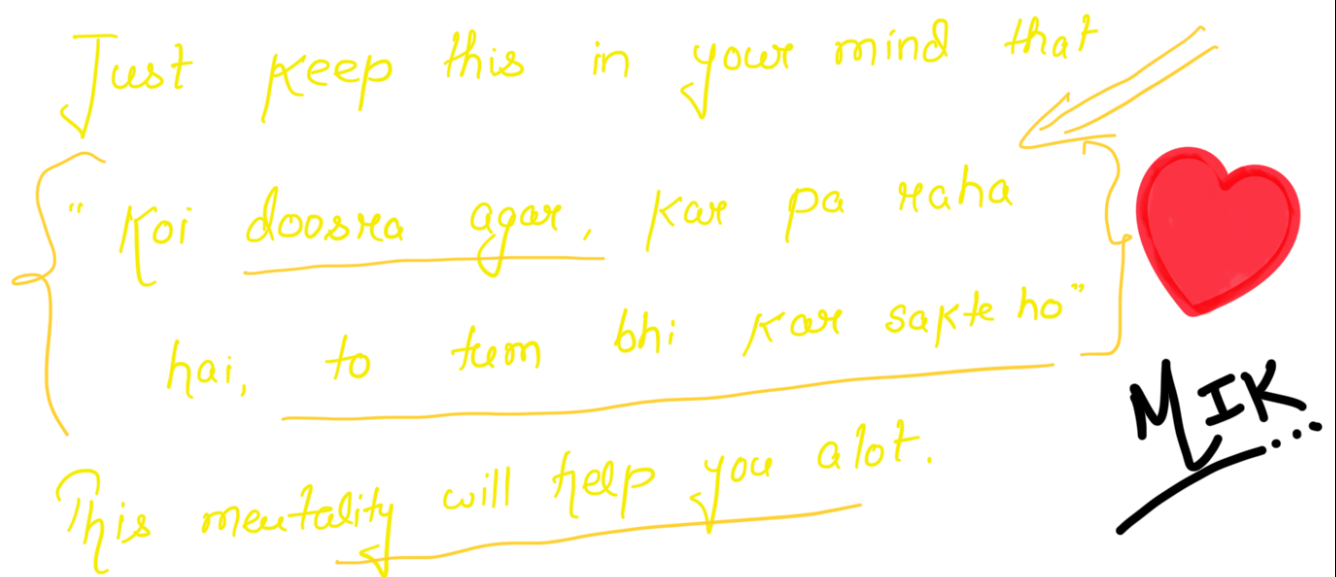 Just keep this in your mind that
"Koi doosra agar, kar pa raha
hai, to tum bhi kar sakte ho"
This mentality will help you alot.
MIK...